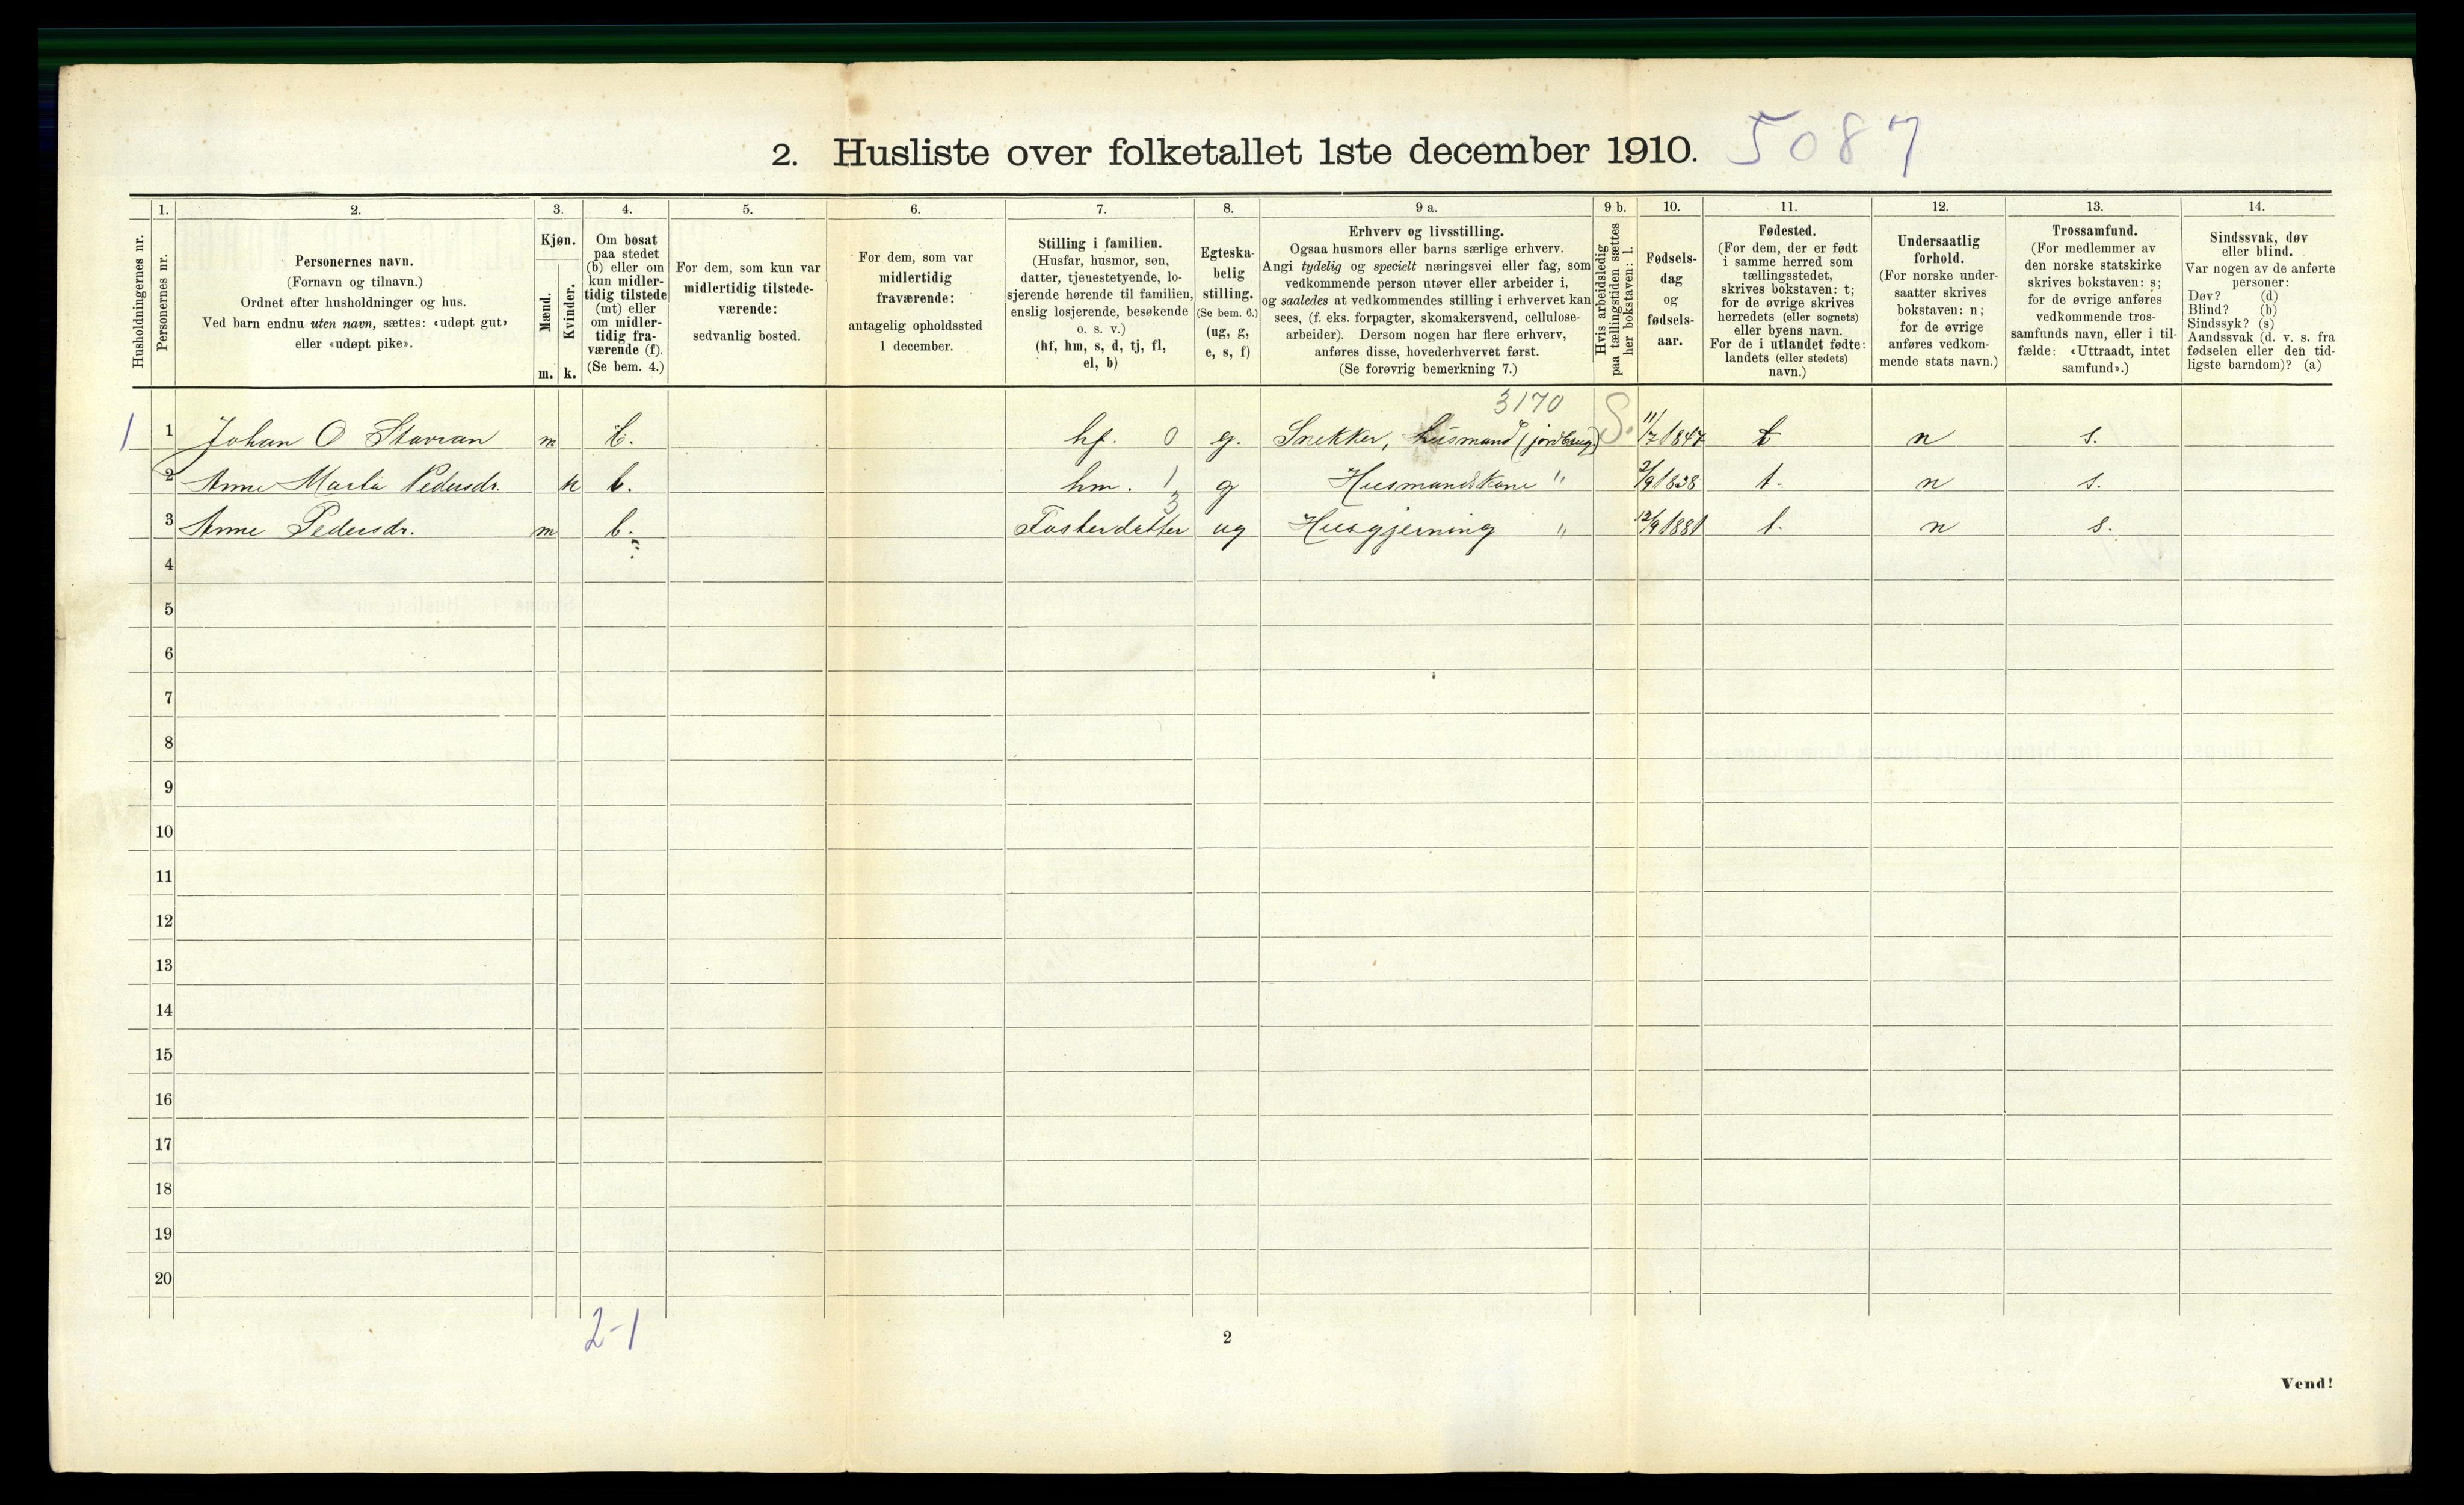 2. Husliste over folketallet 1ste december 1910. 5087
Husholdningernes nr.
1.
Personernes nr.
2.
Personernes navn.
(Fornavn og tilnavn.)
Ordnet efter husholdninger og hus.
Ved barn endnu uten navn, sættes: «udøpt gut»
eller «udøpt pike».
3.
Kjøn.
Mænd.
Kvinder.
m. k.
4.
Om bosat
paa stedet
(b) eller om
kun midler-
tidig tilstede
(mt) eller
om midler-
tidig fra-
værende (f).
(Se bem. 4.)
5.
For dem, som kun var
midlertidig tilstede-
værende:
sedvanlig bosted.
6.
For dem, som var
midlertidig
fraværende:
antagelig opholdssted
1 december.
7.
Stilling i familien.
(Husfar, husmor, søn,
datter, tjenestetyende, lo-
sjerende hørende til familien,
enslig losjerende, besøkende
o. s. v.)
(hf, hm, s, d, tj, fl,
el, b)
8.
Egteska-
belig
stilling.
(Se bem. 6.)
(ug, g,
e, s, f)
9 a.
Erhverv og livsstilling.
Ogsaa husmors eller barns særlige erhverv.
Angi tydelig og specielt næringsvei eller fag, som
vedkommende person utøver eller arbeider i,
og saaledes at vedkommendes stilling i erhvervet kan
sees, (f. eks. forpagter, skomakersvend, cellulose-
arbeider). Dersom nogen har flere erhverv,
anføres disse, hovederhvervet først.
(Se forøvrig bemerkning 7.)
9 b.
Hvis arbeidsledig
paa tællingstiden sættes
her bokstaven: l.
10.
Fødsels-
dag
og
fødsels-
aar.
11.
Fødested.
(For dem, der er født
i samme herred som
tællingsstedet,
skrives bokstaven: t;
for de øvrige skrives
herredets (eller sognets)
eller byens navn.
For de i utlandet fødte:
landets (eller stedets)
navn.)
12.
Undersaatlig
forhold.
(For norske under-
saatter skrives
bokstaven: n;
for de øvrige
anføres vedkom-
mende stats navn.)
13.
Trossamfund.
(For medlemmer av
den norske statskirke
skrives bokstaven: s;
for de øvrige anføres
vedkommende tros-
samfunds navn, eller i til-
fælde: «Uttraadt, intet
samfund».)
14.
Sindssvak, døv
eller blind.
Var nogen av de anførte
personer:
Døv? (d)
Blind? (b)
Sindssyk? (s)
Aandssvak (d. v. s. fra
fødselen eller den tid-
ligste barndom)? (a)
3170
1 1 Johan O Stavran m b. hf. 0 g. Snekker, husmand (jordbrug) S. 11/7 1847 t n s.
2 Anne Marta Pedersdr. k b. hm. 1 g Husmandskone " 2/9 1838 t. n s.
3 Anne Pedersdr. m b. Fosterdatter 3 ug Husgjerning " 12/9 1881 t. n s.
4
5
6
7
8
9
10
11
12
13
14
15
16
17
18
19
20
2-1
2
Vend!